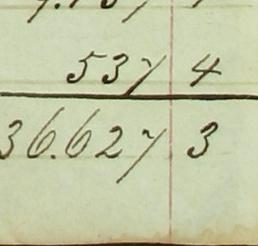 537 4
36.627 3